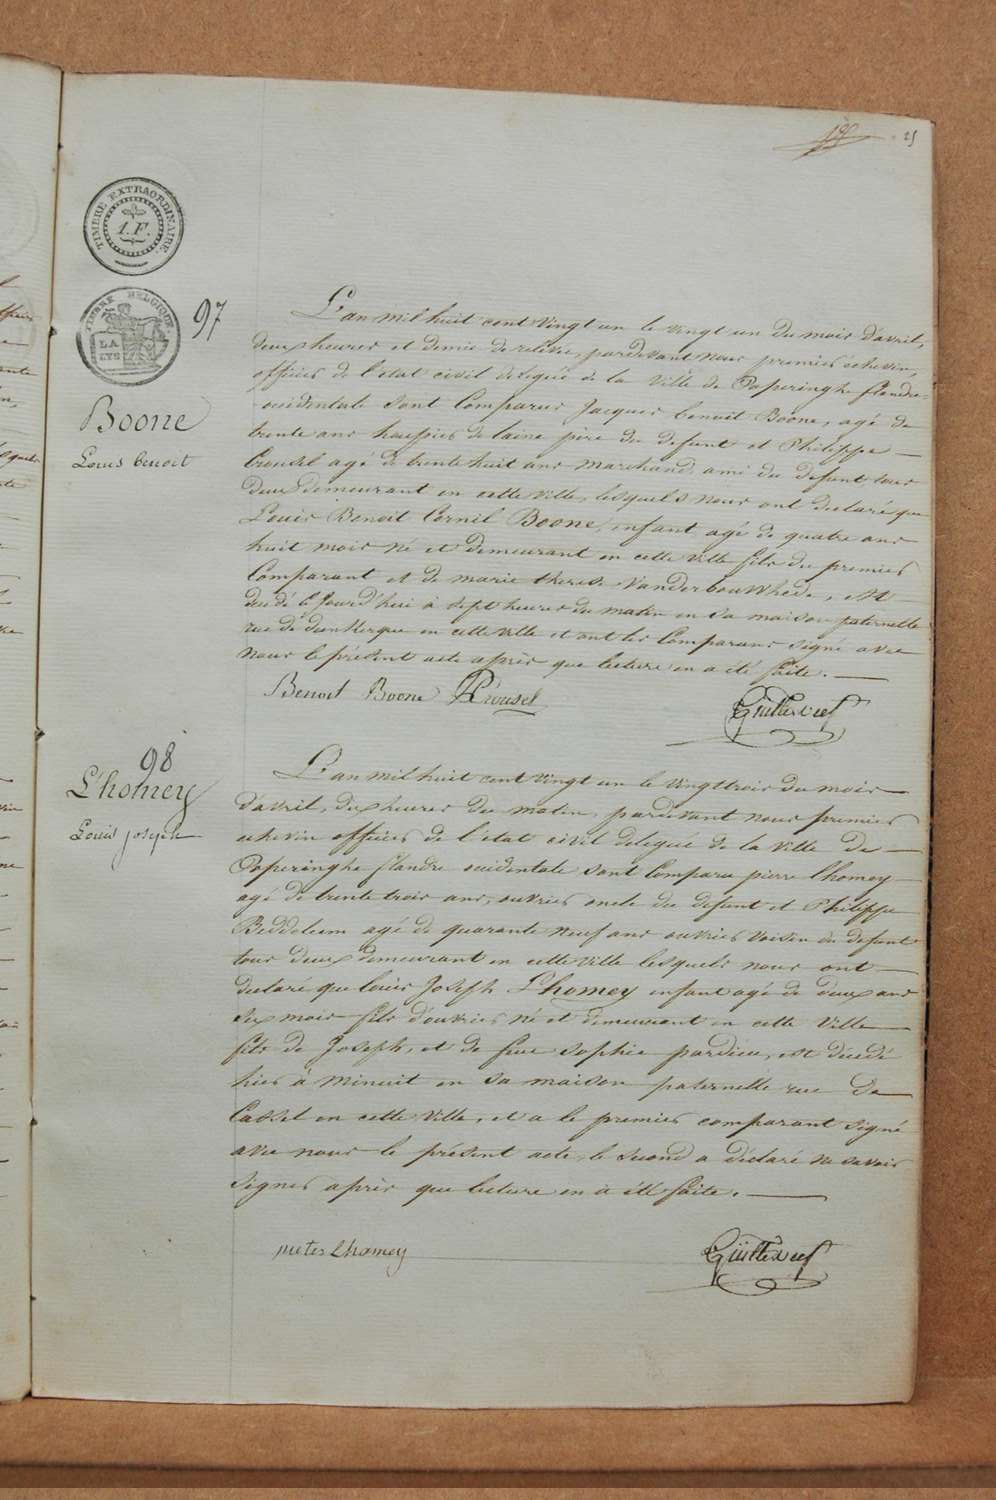 25
TIMBRE EXTRAORDINAIRE
1.F.
TIMBRE BELGIQUE
LA
LYS
97
Boone
Louis benoit
L'an mil huit cent vingt un le vingt un du mois d'avril,
deux heures et demie de relevée, pardevant nous premier échevin,
officier de l'état civil delegué de la Ville de Poperinghe flandre
occidentale sont Comparus Jacques benoit Boone, agé de
trente ans houpier de laine père du defunt et Philippe
Crousel agé de trente huit ans marchand ami du defunt tous
deux demeurant en cette ville, lesquels nous ont declaré que
Louis Benoit Cornil Boone, enfant agé de quatre ans
huit mois né et demeurant en cette ville fils du premier
Comparant et de marie therese Vanderbouwhede, est
decédé cejourd'hui à sept heures du matin en sa maison paternelle
rue de dunkerque en cette ville et ont les Comparans signé avec
nous le présent acte après que lecture en a été faite.
Benoit Boone PCrousel
98
L'homey
Louis joseph
L'an mil huit cent vingt un le vingttrois du mois
d'avril, dix heures du matin, pardevant nous premier
echevin officier de l'état civil delegué de la ville de
Poperinghe flandre occidentale sont Comparu pierre lhomey
agé de trente trois ans, ouvrier oncle du defunt et Philippe
Beddeleem agé de quarante neuf ans ouvrier voisin du defunt
tous deux demeurant en cette ville lesquels nous ont
declaré que louis Joseph L'homey enfant agé de deux ans
six mois fils d'ouvrier né et demeurant en cette Ville
fils de Joseph, et de feue Sophie pardieu, est décédé
hier à minuit en sa maison paternelle rue de
Cassel en cette ville, et a le premier comparant signé
avec nous le présent acte, le second a déclaré ne savoir
signer après que lecture en a été faite.
pieter Lhomey